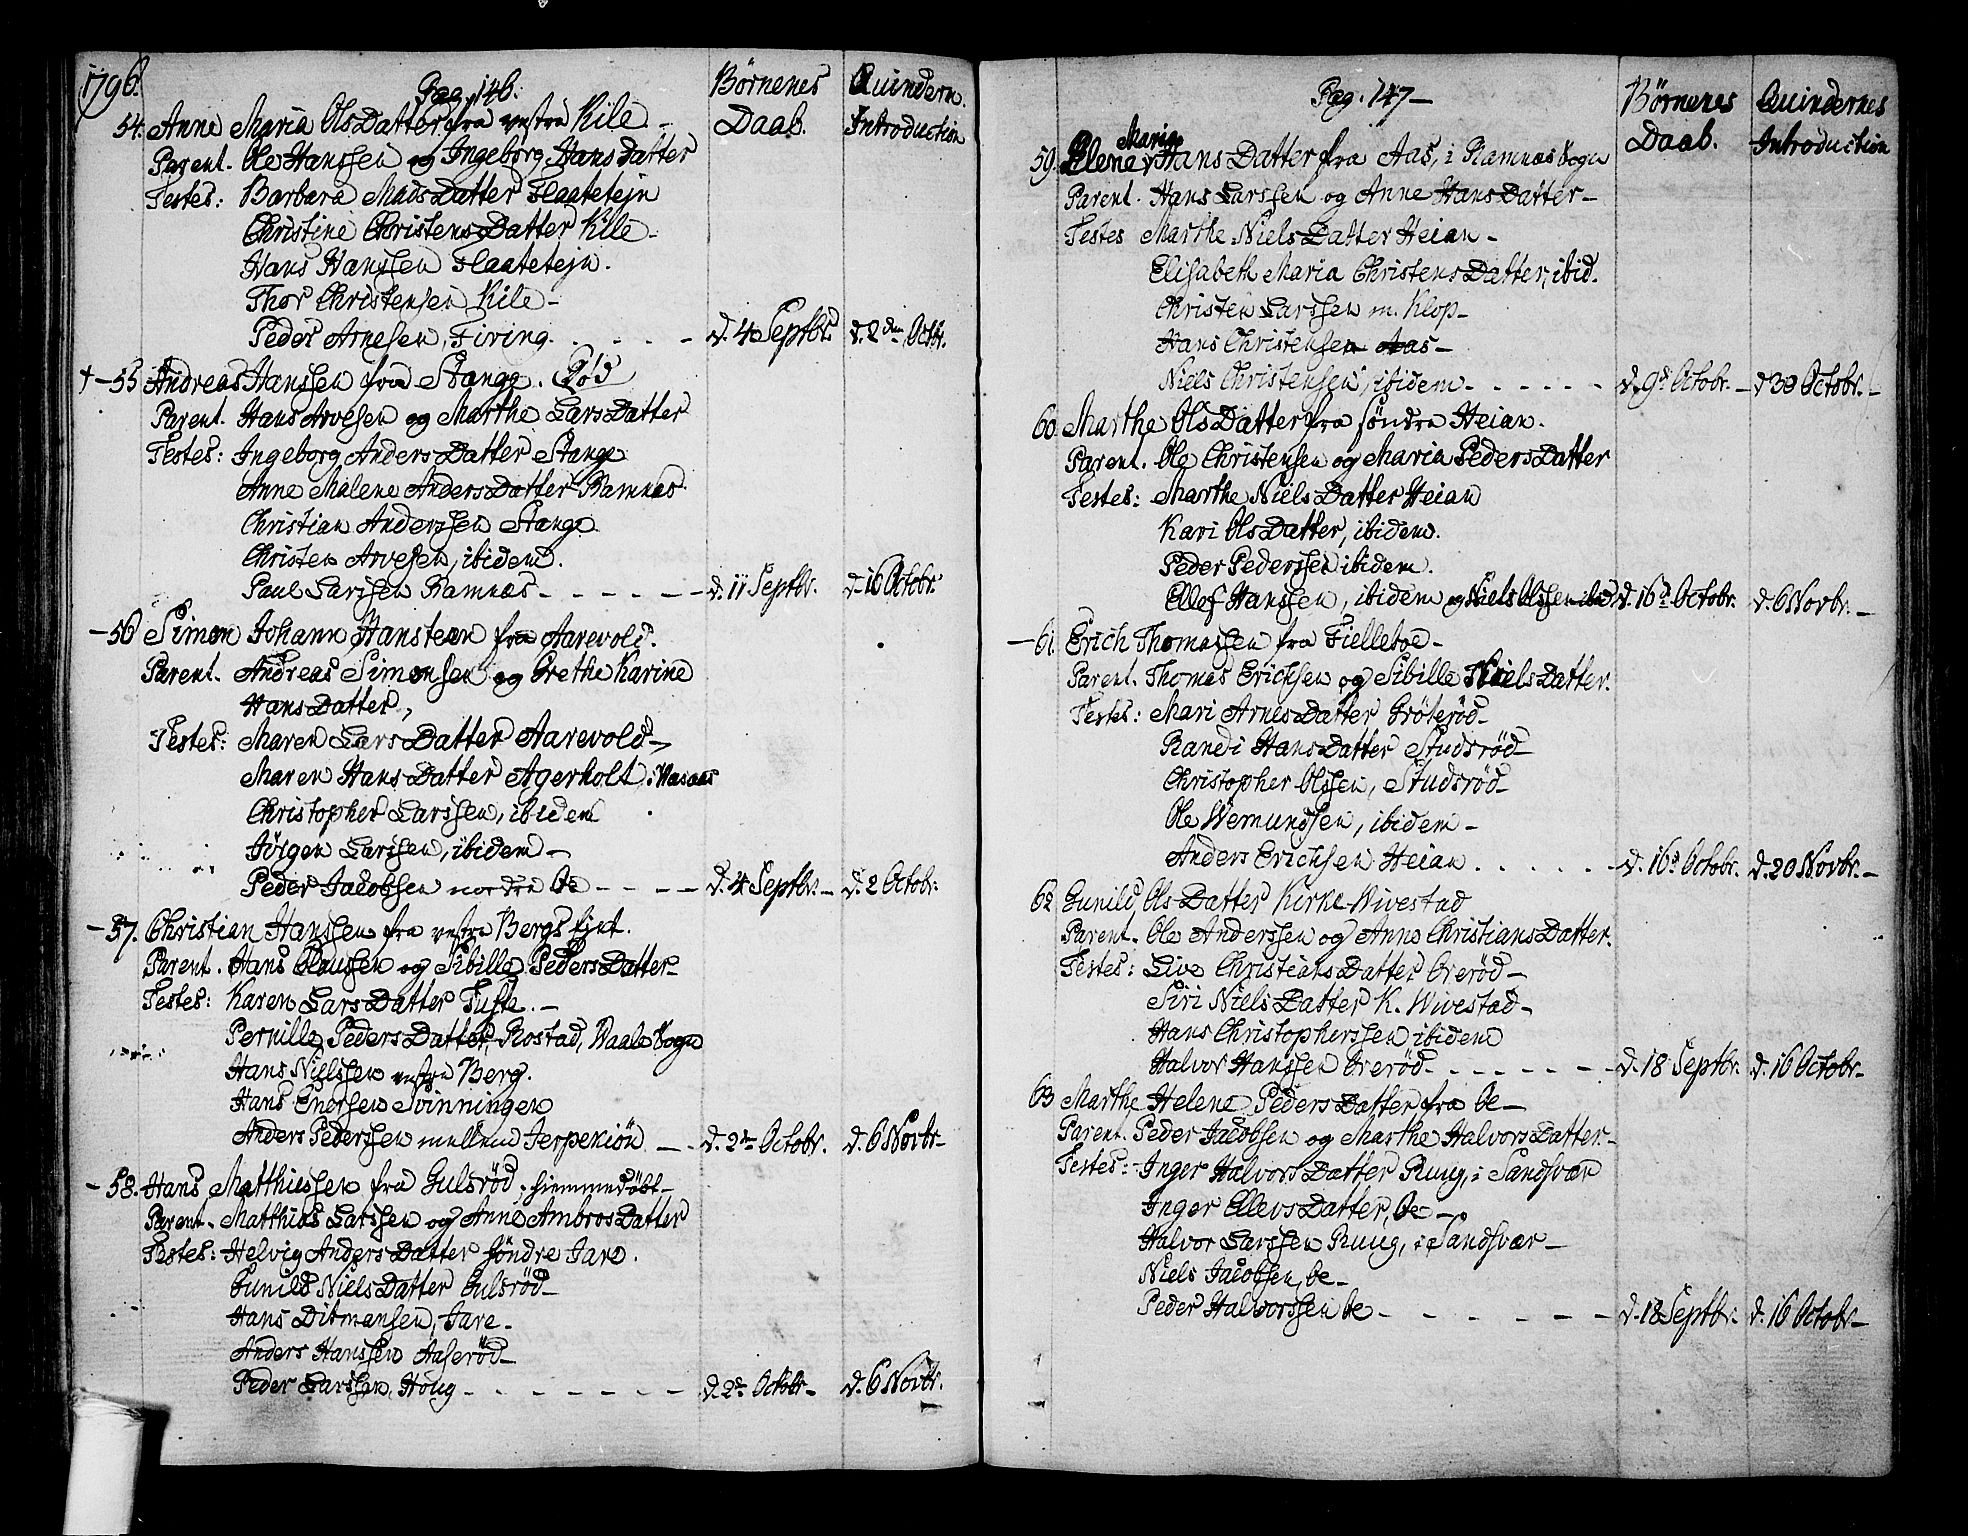 1796.
Pag. 146.
Børnenes Daab.
Quindern. Introduction
54. Anne Maria Ols Datter fra vestre Kile -
Parent. Ole Hanssen og Ingeborg Hans Datter
Testes: Barbara Mads Datter Flaatetejn
Christine Christens Datter Kile -
Hans Hanssen Flaatetejn.
Thor Christensen Kile -
Peder Arnesen, Firing. - - - - d. 4 Septbr. d. 2den Octbr.
† - 55 Andreas Hanssen fra Stange. Død
Parent. Hans Arvesen og Marthe Lars Datter
Testes: Ingeborg Anders Datter Stange
Anne Malene Anders Datter Ramnæs
Christian Anderssen Stange
Christen Arvesen, ibidem.
Paul Larssen Ramnæs - - - - - d. 11 Septbr. d. 16 Octobr.
- 56 Simon Johann Hansteen fra Aarevold.
Parent. Andreas Simonsen og Grethe Karine
Hans Datter,
Testes: Maren Lars Datter Aarevold -
Maren Hans Datter Agerholt i Vasaas
Christopher Larssen, ibidem
Jörgen Larssen, ibidem -
Peder Jacobsen nordre Be - - - - d. 4 Septbr. - d. 2 Octobr:
- 57. Christian Hanssen fra vestre Bergs hjut.
Parent. Hans Clausen og Sibille Peders Datter -
Testes: Karen Lars Datter Tufte. -
Pernille Peders Datter, Rostad, Vaale Sogn
Hans Nielssen vestre Berg.
Hans Enersen Svinningen
Anders Pederssen mellem Jerpekiøn - - d. 2de Octobr. d. 6 Novbr -
- 58. Hans Matthiessen fra Gulsrød, hiemmedøbt -
Parent. Matthias Larssen og Anne Ambros Datter
Testes: Helvig Anders Datter Søndre Jare.
Gunild Niels Datter Gulsrød -
Hans Ditmansen, Jare -
Anders Hanssen Aaserød -
Peder Larssen, Houg - - - - - - - d. 2de Octbr - d. 6 Novbr.
Pag. 147 -
Børnenes Daab.
Quindernes Introduction
Maria
59. Elene Hans Datter fra Aas, i Ramnæs Sogn
Parent. Hans Larssen og Anne Hans Datter -
Testes Marthe Niels Datter Heian -
Elisabeth Maria Christens Datter, ibid.
Christen Larssen m. Klop -
Hans Christensen Aas -
Niels Christensen, ibidem - - - - - d. 9de Octobr. - d 30 Octobr. -
60. Marthe Ols Datter fra søndre Heian.
Parent. Ole Christensen og Maria Peders Datter
Testes: Marthe Niels Datter Heian
Kari Ols Datter, ibidem.
Peder Pederssen ibidem.
Ellef Hanssen, ibidem og Niels Olssen ibid. d. 16de Octobr. d. 6 Novbr. -
- 61. Erich Thomassen fra Fielleboe -
Parent. Thomas Erichsen og Sibille Niels Datter.
Testes: Mari Arnes Datter Grøterød -
Randi Hans Datter Studsrød -
Christopher Olssen, Studsrød -
Ole Wemundsen, ibidem -
Anders Erichsen Heian . . . . . . - d. 16de Octobr. d. 20 Novbr. -
62 Gunild Ols Datter Kirke-Wivestad
Parent. Ole Anderssen og Anne Christians Datter.
Testes: Live Christians Datter Orerød -
Siri Niels Datter K. Wivestad -
Hans Christopherssen ibidem
Halvor Hanssen Orerød - - - - - - - d. 18 Septbr. d. 16 Octobr -
63 Marthe Helene Peders Datter fra Be -
Parent. Peder Jacobsen og Marthe Halvors Datter -
Testes: Inger Halvors Datter Ruug, i Sandsvær
Inger Ellevs Datter, Be -
Halvor Larssen Ruug, i Sandsvær -
Niels Jacobsen, Be -
Peder Halvorssen Be - - - - - - d. 18 Septbr. - d. 16 Octobr. -